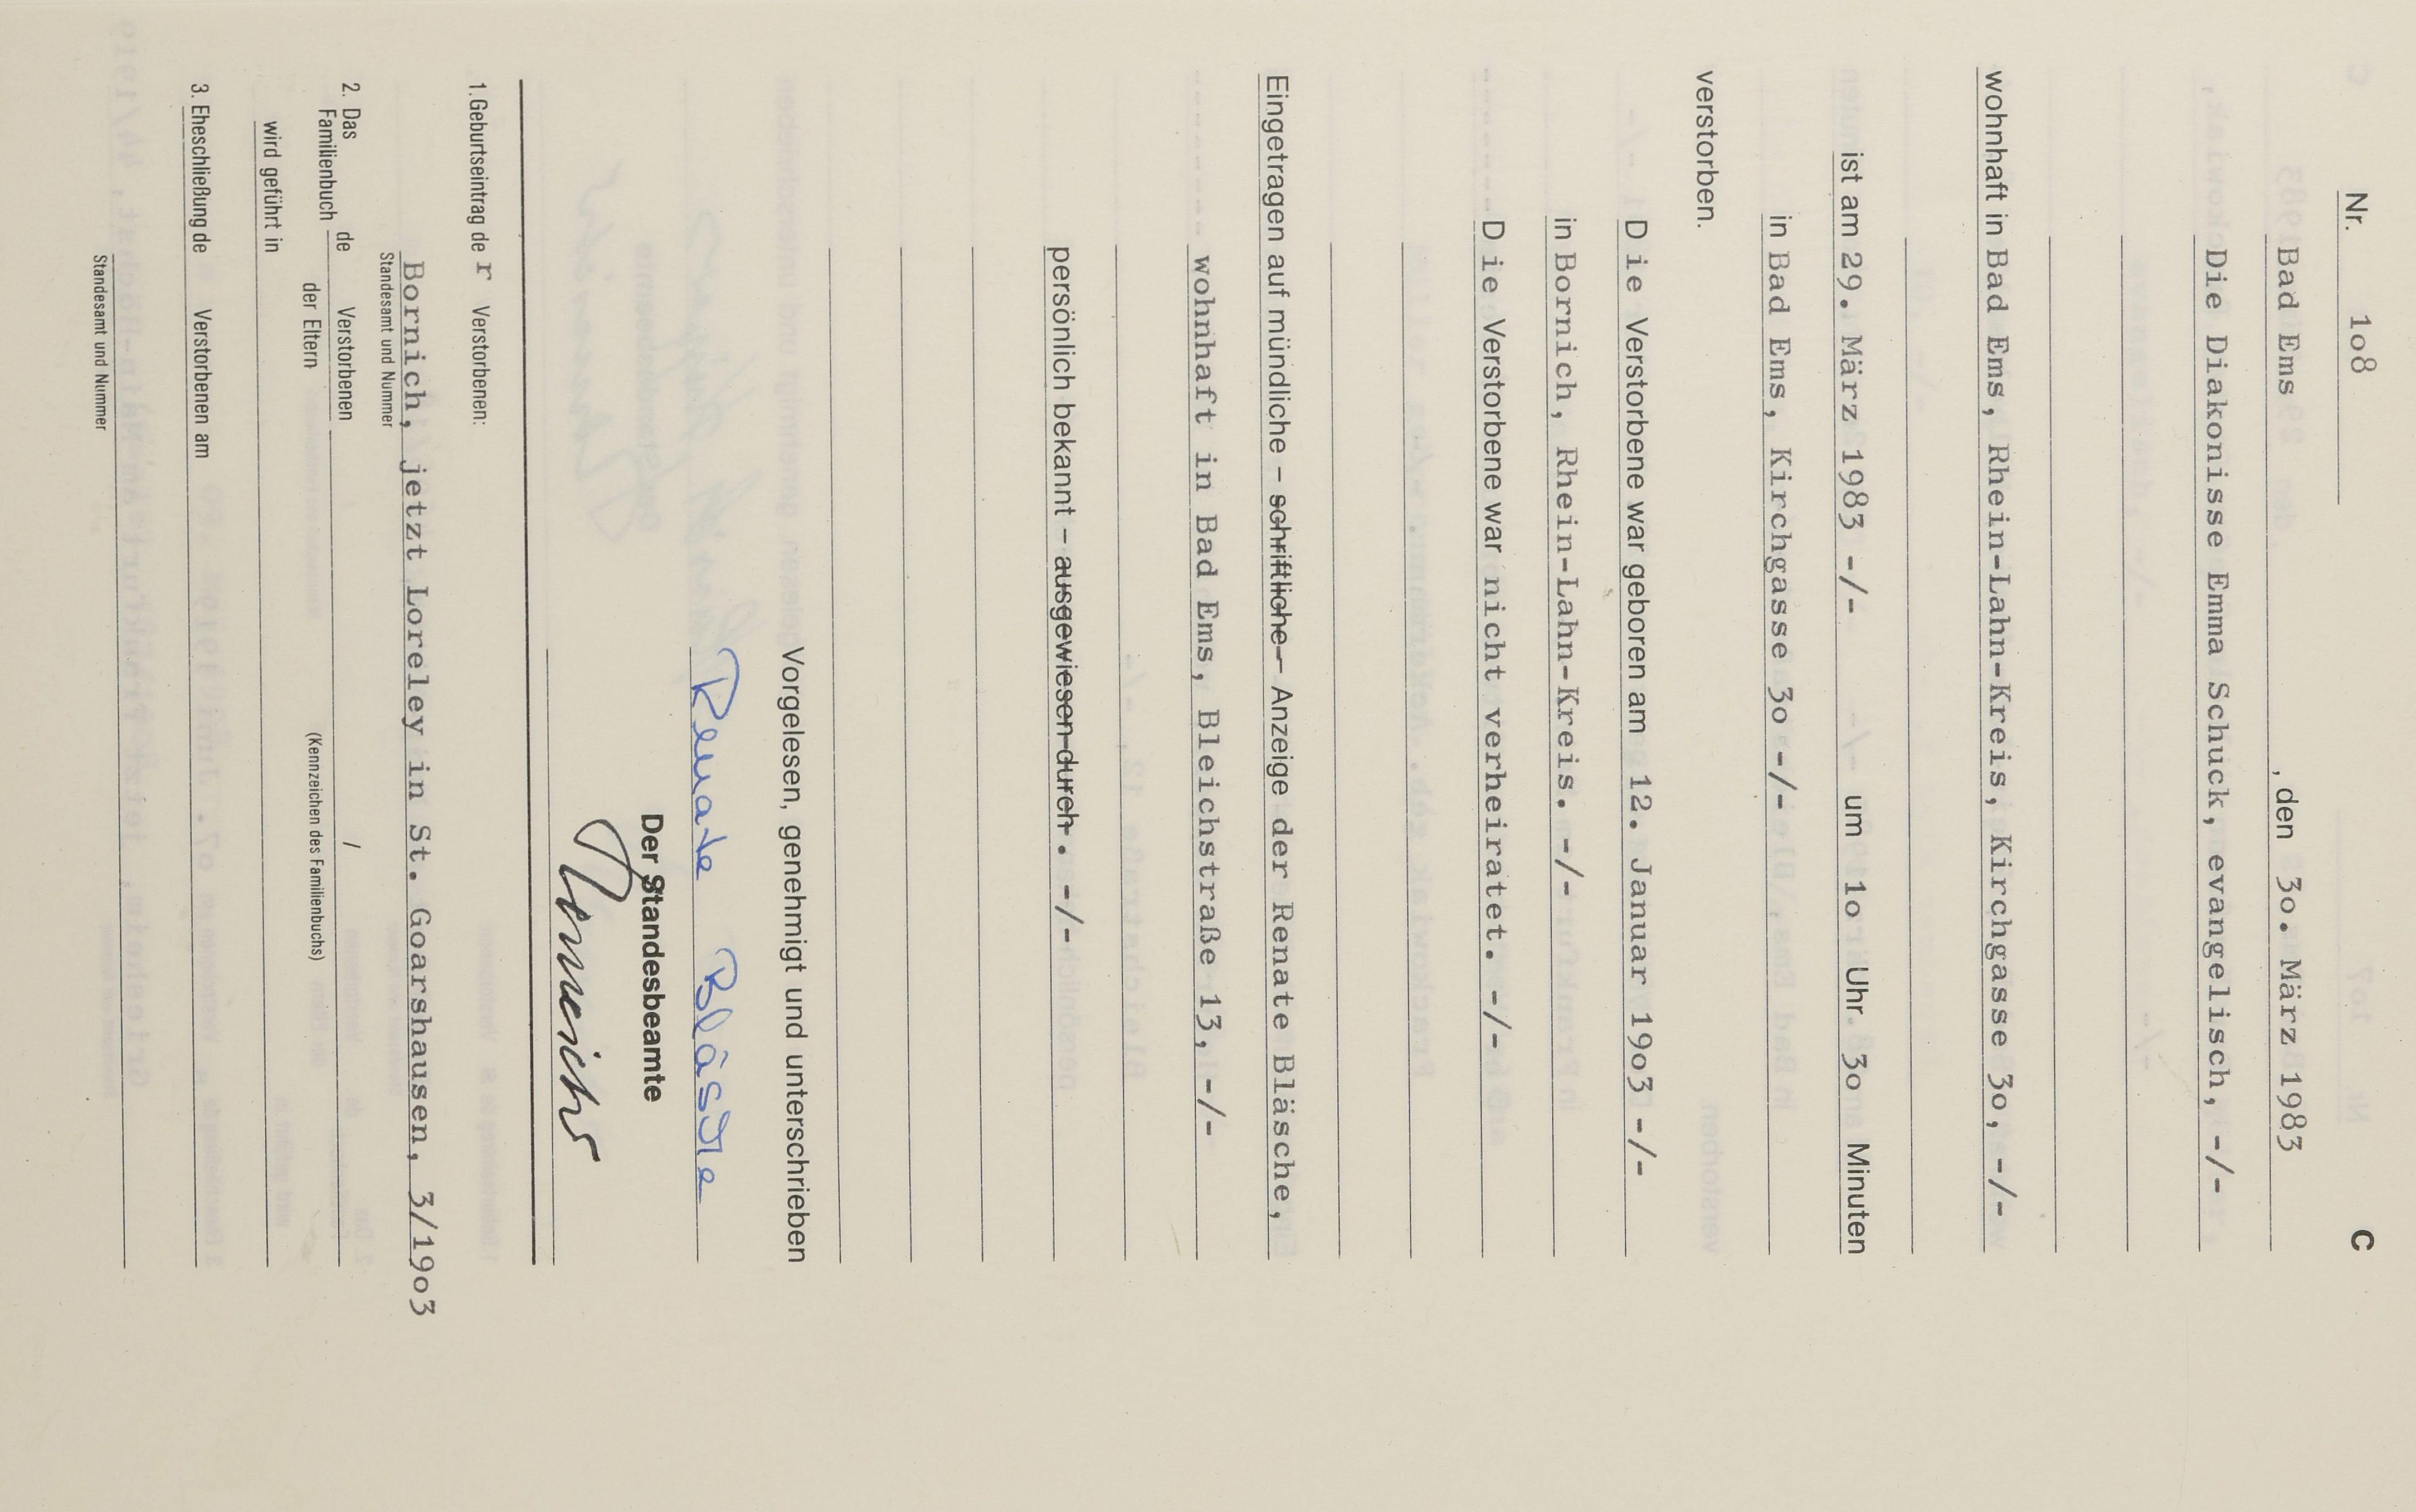 Nr. 1o8 C
Bad Ems , den 3o. März 1983
Die Diakonisse Emma Schuck, evangelisch, -/-
wohnhaft in Bad Ems, Rhein-Lahn-Kreis, Kirchgasse 3o, -/-
ist am 29. März 1983 -/- um 1o Uhr 3o Minuten
in Bad Ems, Kirchgasse 3o -/-
verstorben.
D ie Verstorbene war geboren am 12. Januar 19o3 -/-
in Bornich, Rhein-Lahn-Kreis. -/-
D ie Verstorbene war nicht verheiratet. -/-
Eingetragen auf mündliche – schriftliche – Anzeige der Renate Bläsche,
wohnhaft in Bad Ems, Bleichstraße 13, -/-
persönlich bekannt – ausgewiesen durch . -/-
Vorgelesen, genehmigt und unterschrieben
Renate Bläsche
Der Standesbeamte
1. Geburtseintrag de r Verstorbenen:
Bornich, jetzt Loreley in St. Goarshausen, 3/19o3
Standesamt und Nummer
2. Das Familienbuch de Verstorbenen /
der Eltern (Kennzeichen des Familienbuchs)
wird geführt in
3. Eheschließung de Verstorbenen am
Standesamt und Nummer